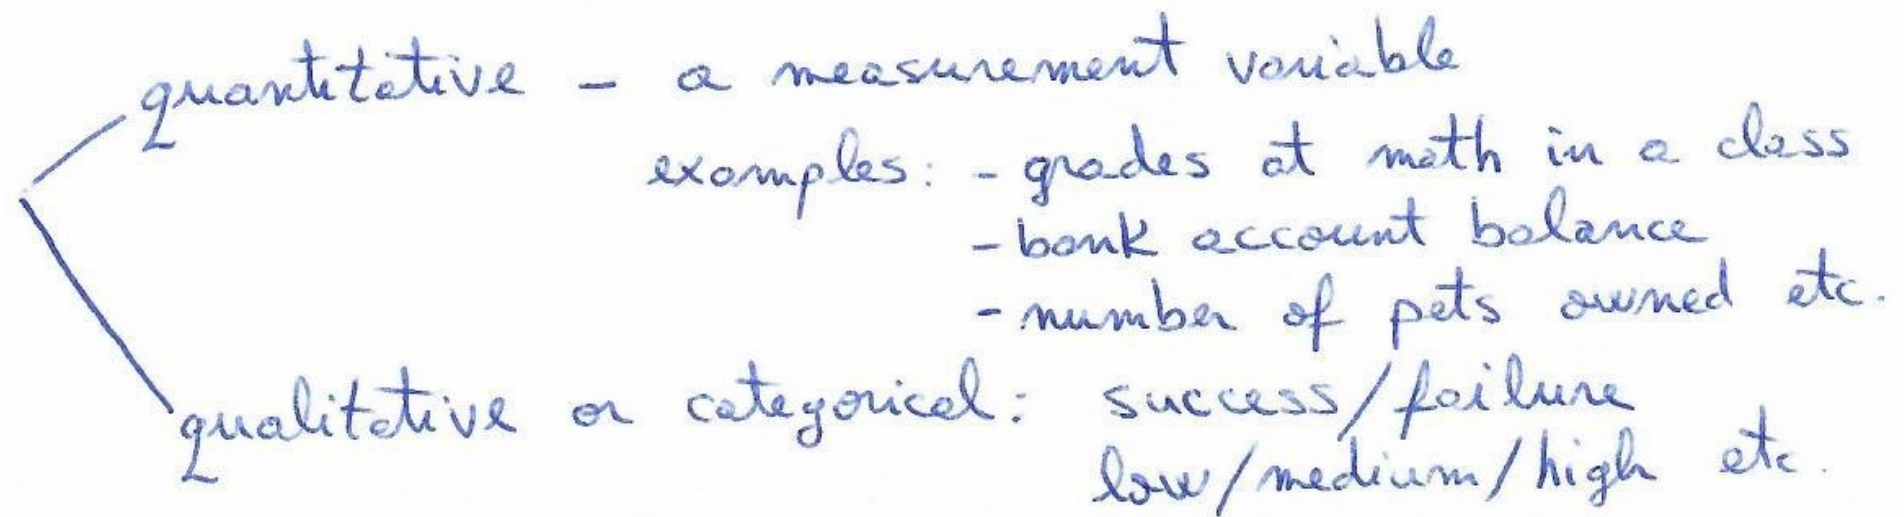 quantitative - a measurement variable
examples: - grades at math in a class
- bank account balance
- number of pets owned etc.
qualitative or categorical: success/failure
low/medium/high etc.